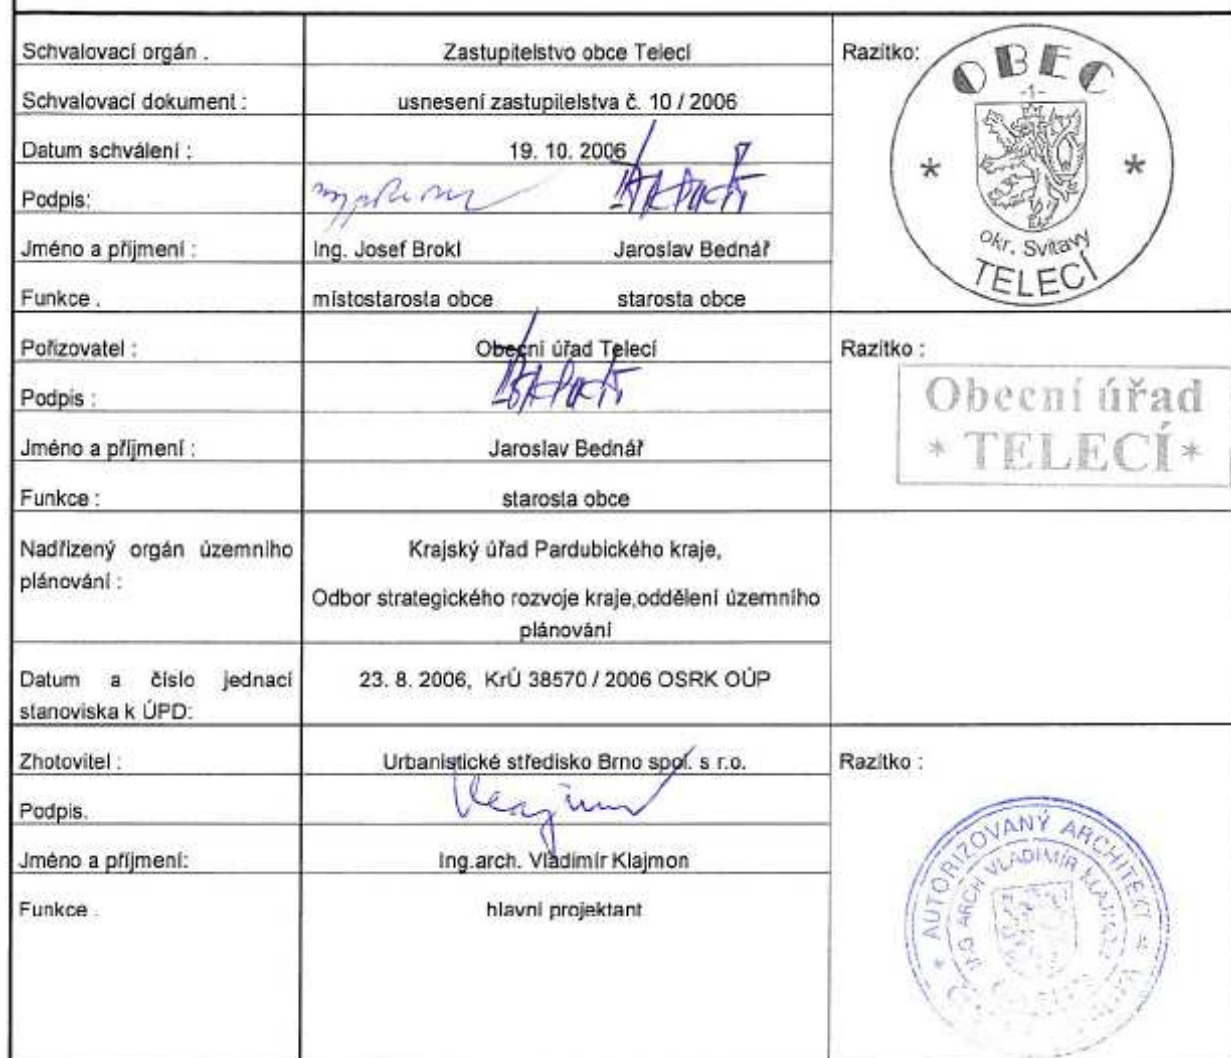 Schvalovací orgán . Zastupitelstvo obce Telecí Razítko:
OBEC
-1-
* *
okr. Svitavy
TELECÍ
Schvalovací dokument : usnesení zastupitelstva č. 10 / 2006
Datum schválení : 19. 10. 2006
Podpis:
Jméno a příjmení : Ing. Josef Brokl Jaroslav Bednář
Funkce . místostarosta obce starosta obce
Pořizovatel : Obecní úřad Telecí Razítko :
Obecní úřad
* TELECÍ *
Podpis :
Jméno a příjmení : Jaroslav Bednář
Funkce : starosta obce
Nadřízený orgán územního
plánování :
Krajský úřad Pardubického kraje,
Odbor strategického rozvoje kraje,oddělení územního
plánování
Datum a číslo jednací
stanoviska k ÚPD:
23. 8. 2006, KrÚ 38570 / 2006 OSRK OÚP
Zhotovitel : Urbanistické středisko Brno spol. s r.o. Razítko :
Podpis.
Jméno a příjmení: Ing.arch. Vladimír Klajmon
Funkce . hlavní projektant
* AUTORIZOVANÝ ARCHITEKT *
ARCH VLADIMÍR